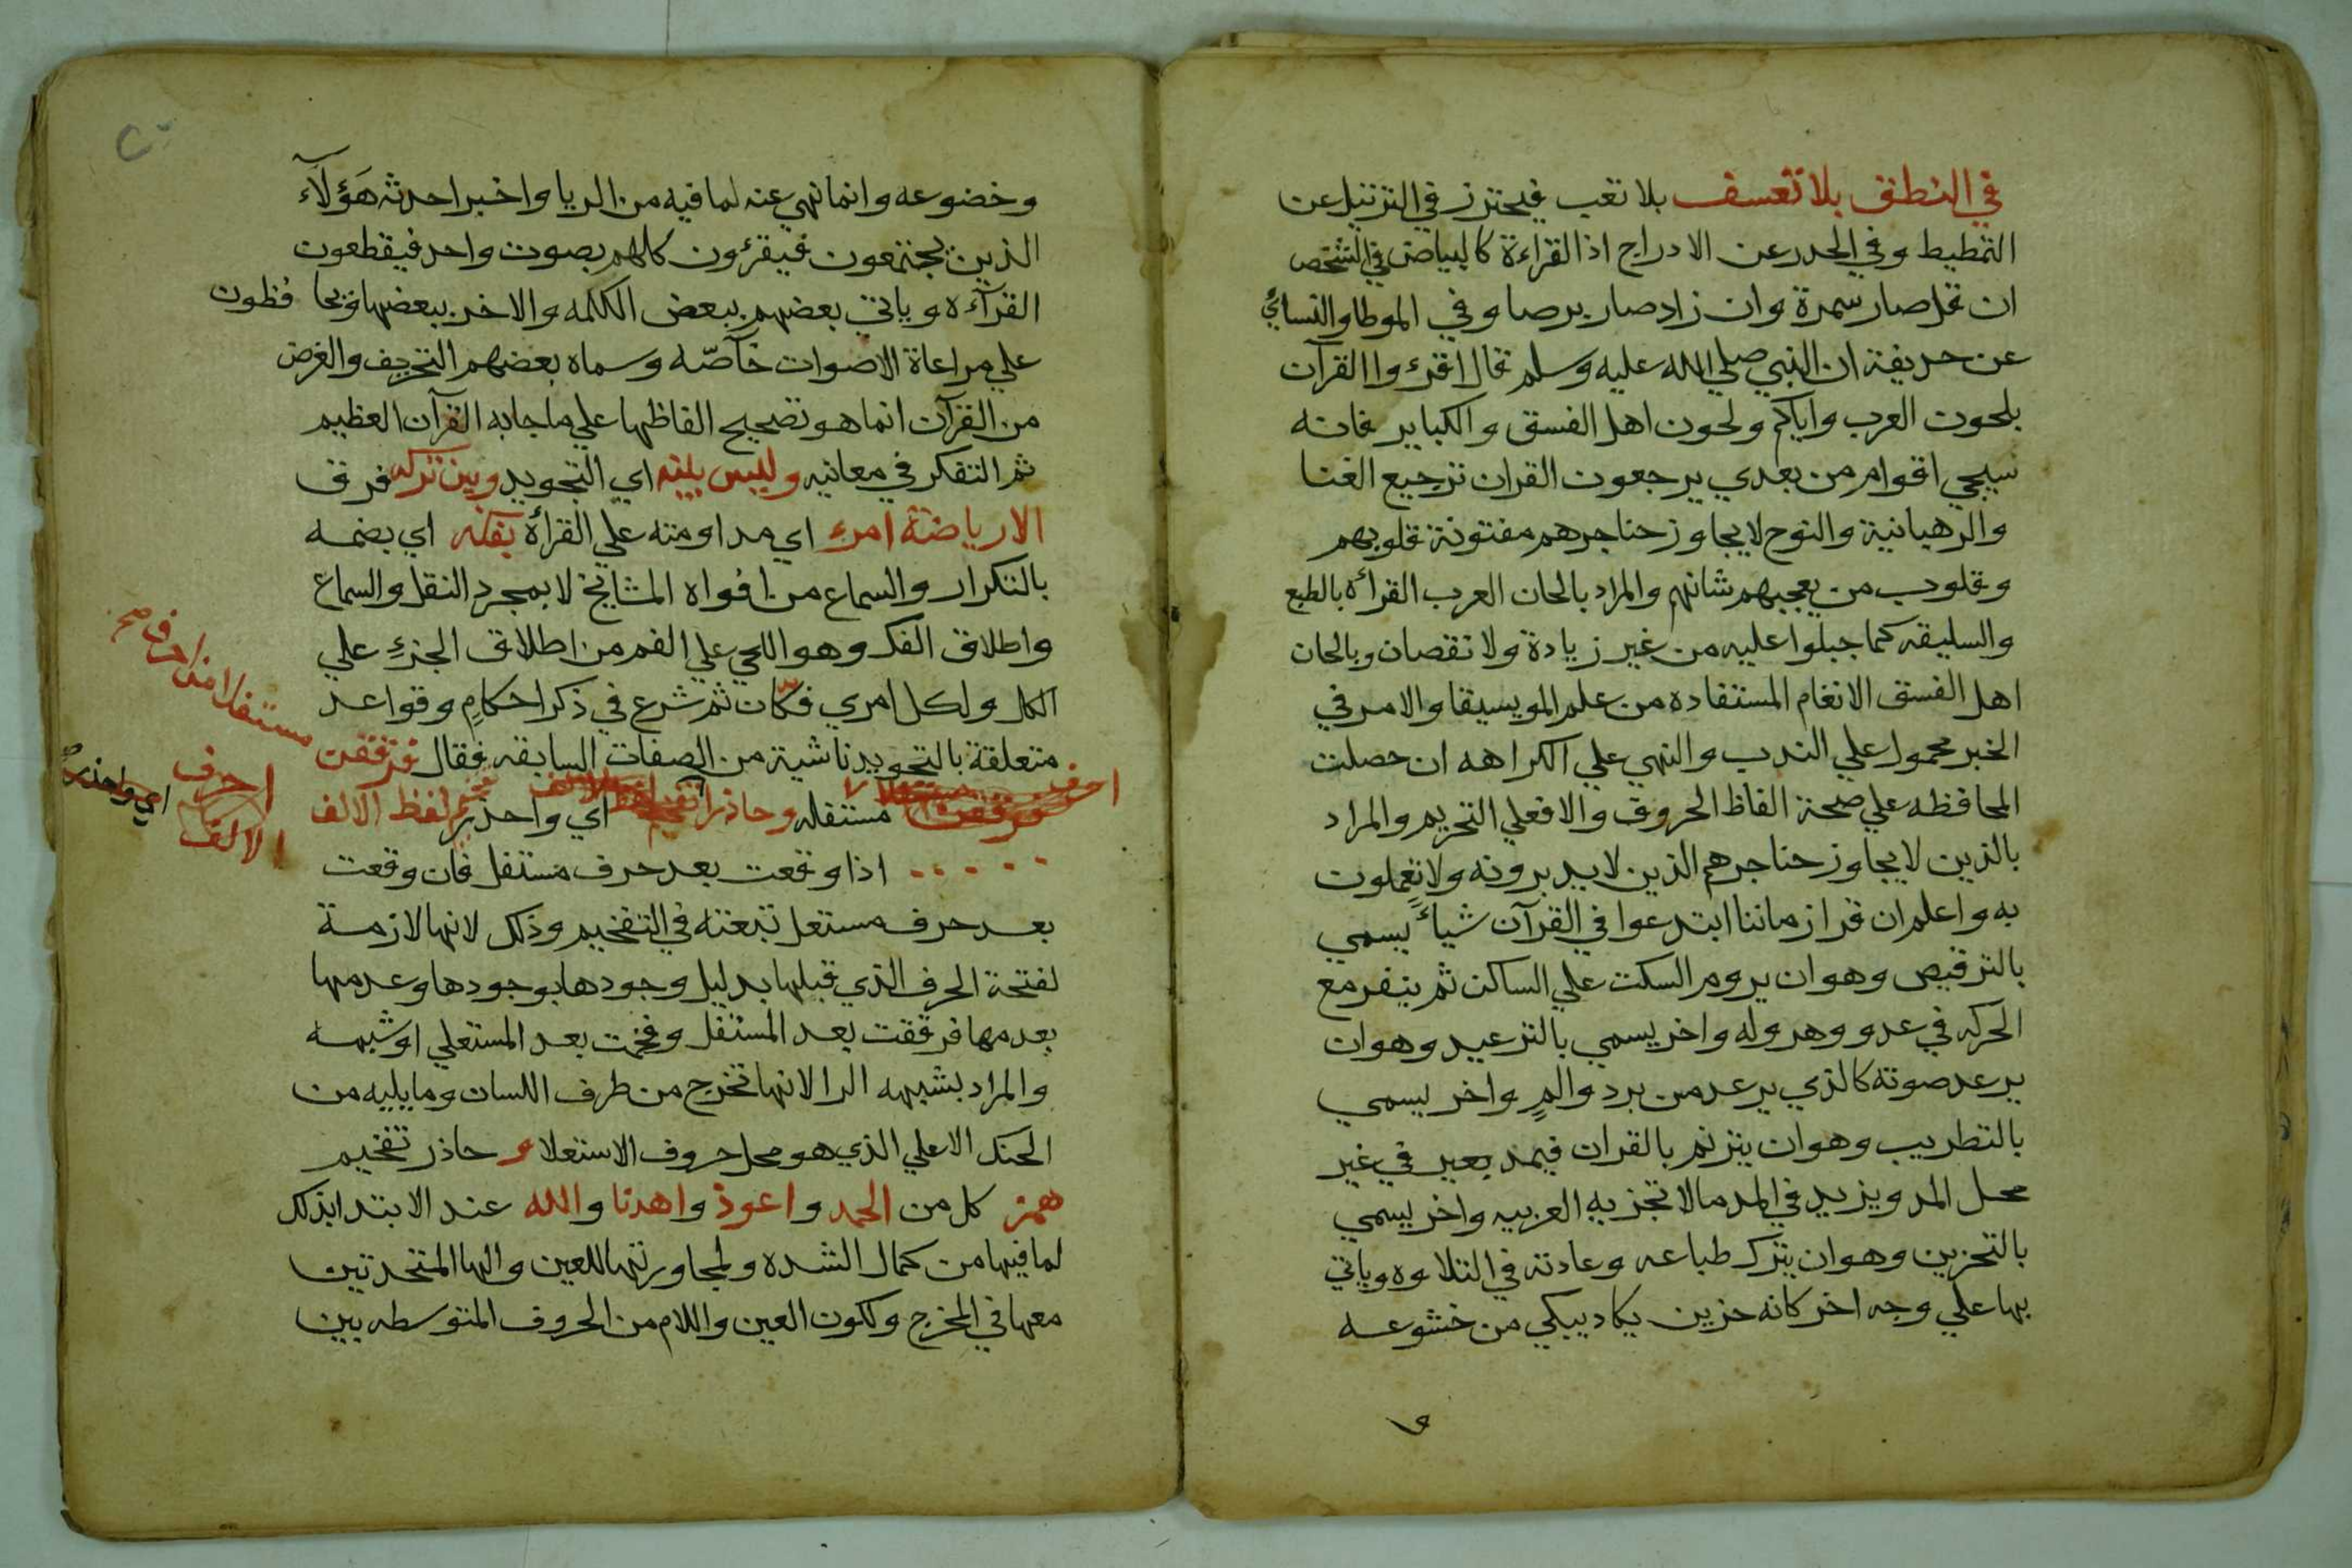 في النطق بلا تعسف بلا تعب فيحترز في الترتيل عن
التمطيط وفي الحدر عن الادراج اذ القراءة كالبياض في الشخص
ان قل صار سمرة وان زاد صار برصا وفي الموطا والنسائي
عن حذيفة ان النبي صلي الله عليه وسلم قال اقرؤوا القرآن
بلحون العرب واياكم ولحون اهل الفسق والكباير فانه
سيجي اقوام من بعدي يرجعون القران ترجيع الغنا
والرهبانية والنوح لا يجاوز حناجرهم مفتونة قلوبهم
وقلوب من يعجبهم شانهم والمراد بالحان العرب القرأة بالطبع
والسليقه كما جبلوا عليه من غير زيادة ولا نقصان وبالحان
اهل الفسق الانغام المستفاده من علم المويسيقا والامر في
الخبر محمول علي الندب والنهي علي الكراهه ان حصلت
المحافظه علي صحة الفاظ الحروف والا فعلي التحريم والمراد
بالذين لا يجاوز حناجرهم الذين لا يتدبرونه ولا يعملون
به واعلم ان قرا زماننا ابتدعوا في القرآن شيأ يسمي
بالترقيص وهو ان يروم السكت علي الساكن ثم ينفر مع
الحركه في عدو وهروله واخر يسمي بالترعيد وهو ان
يرعد صوته كالذي يرعد من برد والمٍ واخر يسمي
بالتطريب وهو ان يترنم بالقران فيمد بعير في غير
محل المد ويزيد في المد مالا تجزيه العربيه واخر يسمي
بالتحزين وهو ان يترك طباعه وعادته في التلاوه وياتي
بها علي وجه اخر كانه حزين يكاد يبكي من خشوعه
وخضوعه وانما نهي عنه لما فيه من الريا واخبر احدثه هَؤلآء
الذين يجتمعون فيقرئون كلهم بصوت واحد فيقطعون
القرآءه وياتي بعضهم ببعض الكلمه والاخر ببعضها ويحافظون
علي مراعاة الاصوات خآصّه وسماه بعضهم التحريف والغرض
من القرآن انما هو تصحيح الفاظها علي ما جا به القرآن العظيم
ثم التفكر في معانيه وليس بينه اي التجويد وبين تركه فرق
الا رياضة امرء اي مداومته علي القرأة بفكه اي بضمه
بالتكرار والسماع من افواه المشايخ لا بمجرد النقل والسماع
واطلاق الفك وهو اللحي علي الفم من اطلاق الجزءِ علي
الكل ولكل امري فكّان ثم شرع في ذكر احكامٍ وقواعد
متعلقة بالتجويد ناشية من الصفات السابقه فقال فرققت
مستفلا من احرف صح
مستفله وحاذرا اي واحذر لفظ الالف
احرف
الالف
اي واحذر
اذا وقعت بعد حرف مستفل فان وقعت
بعد حرف مستعل تبعته في التفخيم وذلك لانها لازمة
لفتحة الحرف الذي قبلها بدليل وجودها بوجودها وعدمها
بعدمها فرققت بعد المستفل وفخمت بعد المستعلي او شبهه
والمراد بشبهه الرا لانها تخرج من طرف اللسان وما يليه من
الحنك الاعلي الذي هو محل حروف الاستعلا و حاذر تفخيم
همز كل من الحمد واعوذ واهدنا والله عند الابتدا بذلك
لما فيها من كمال الشده ولمجاورتها للعين والها المتحدتين
معها في المخرج ولكون العين واللام من الحروف المتوسطه بين